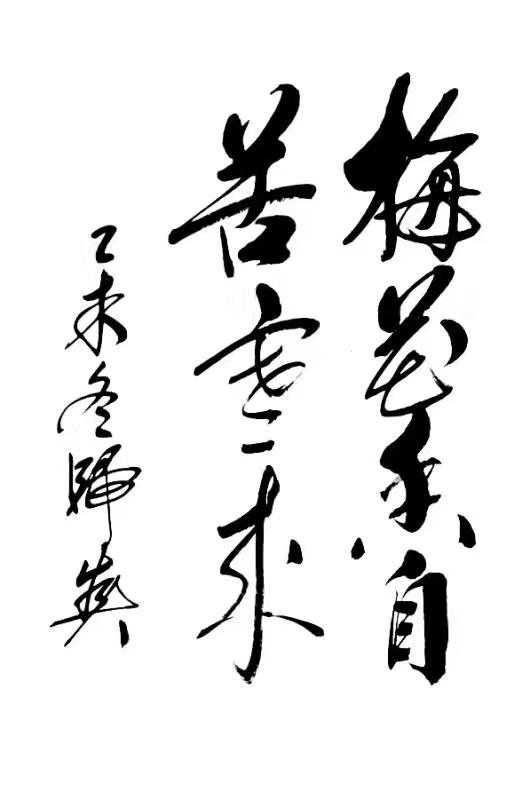 梅花香自
苦寒来
乙未冬